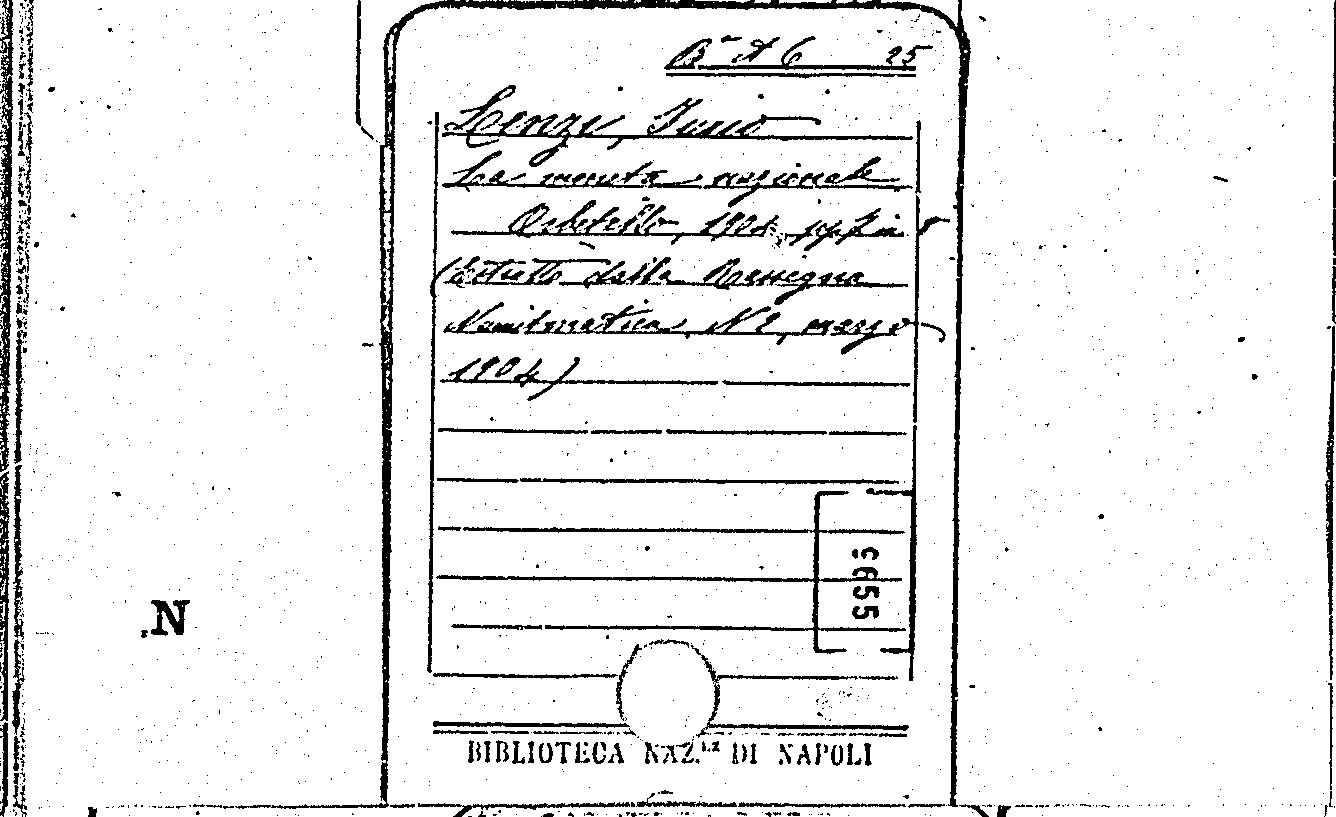 Bª A 6 25
Lenzi, Furio
La moneta nazionale
Orbetello, 1904 pp. 7 in 8°
(Estratto dalla Rassegna
Numismatica, N 2, marzo
1904)
5655
N
BIBLIOTECA NAZ.LE DI NAPOLI